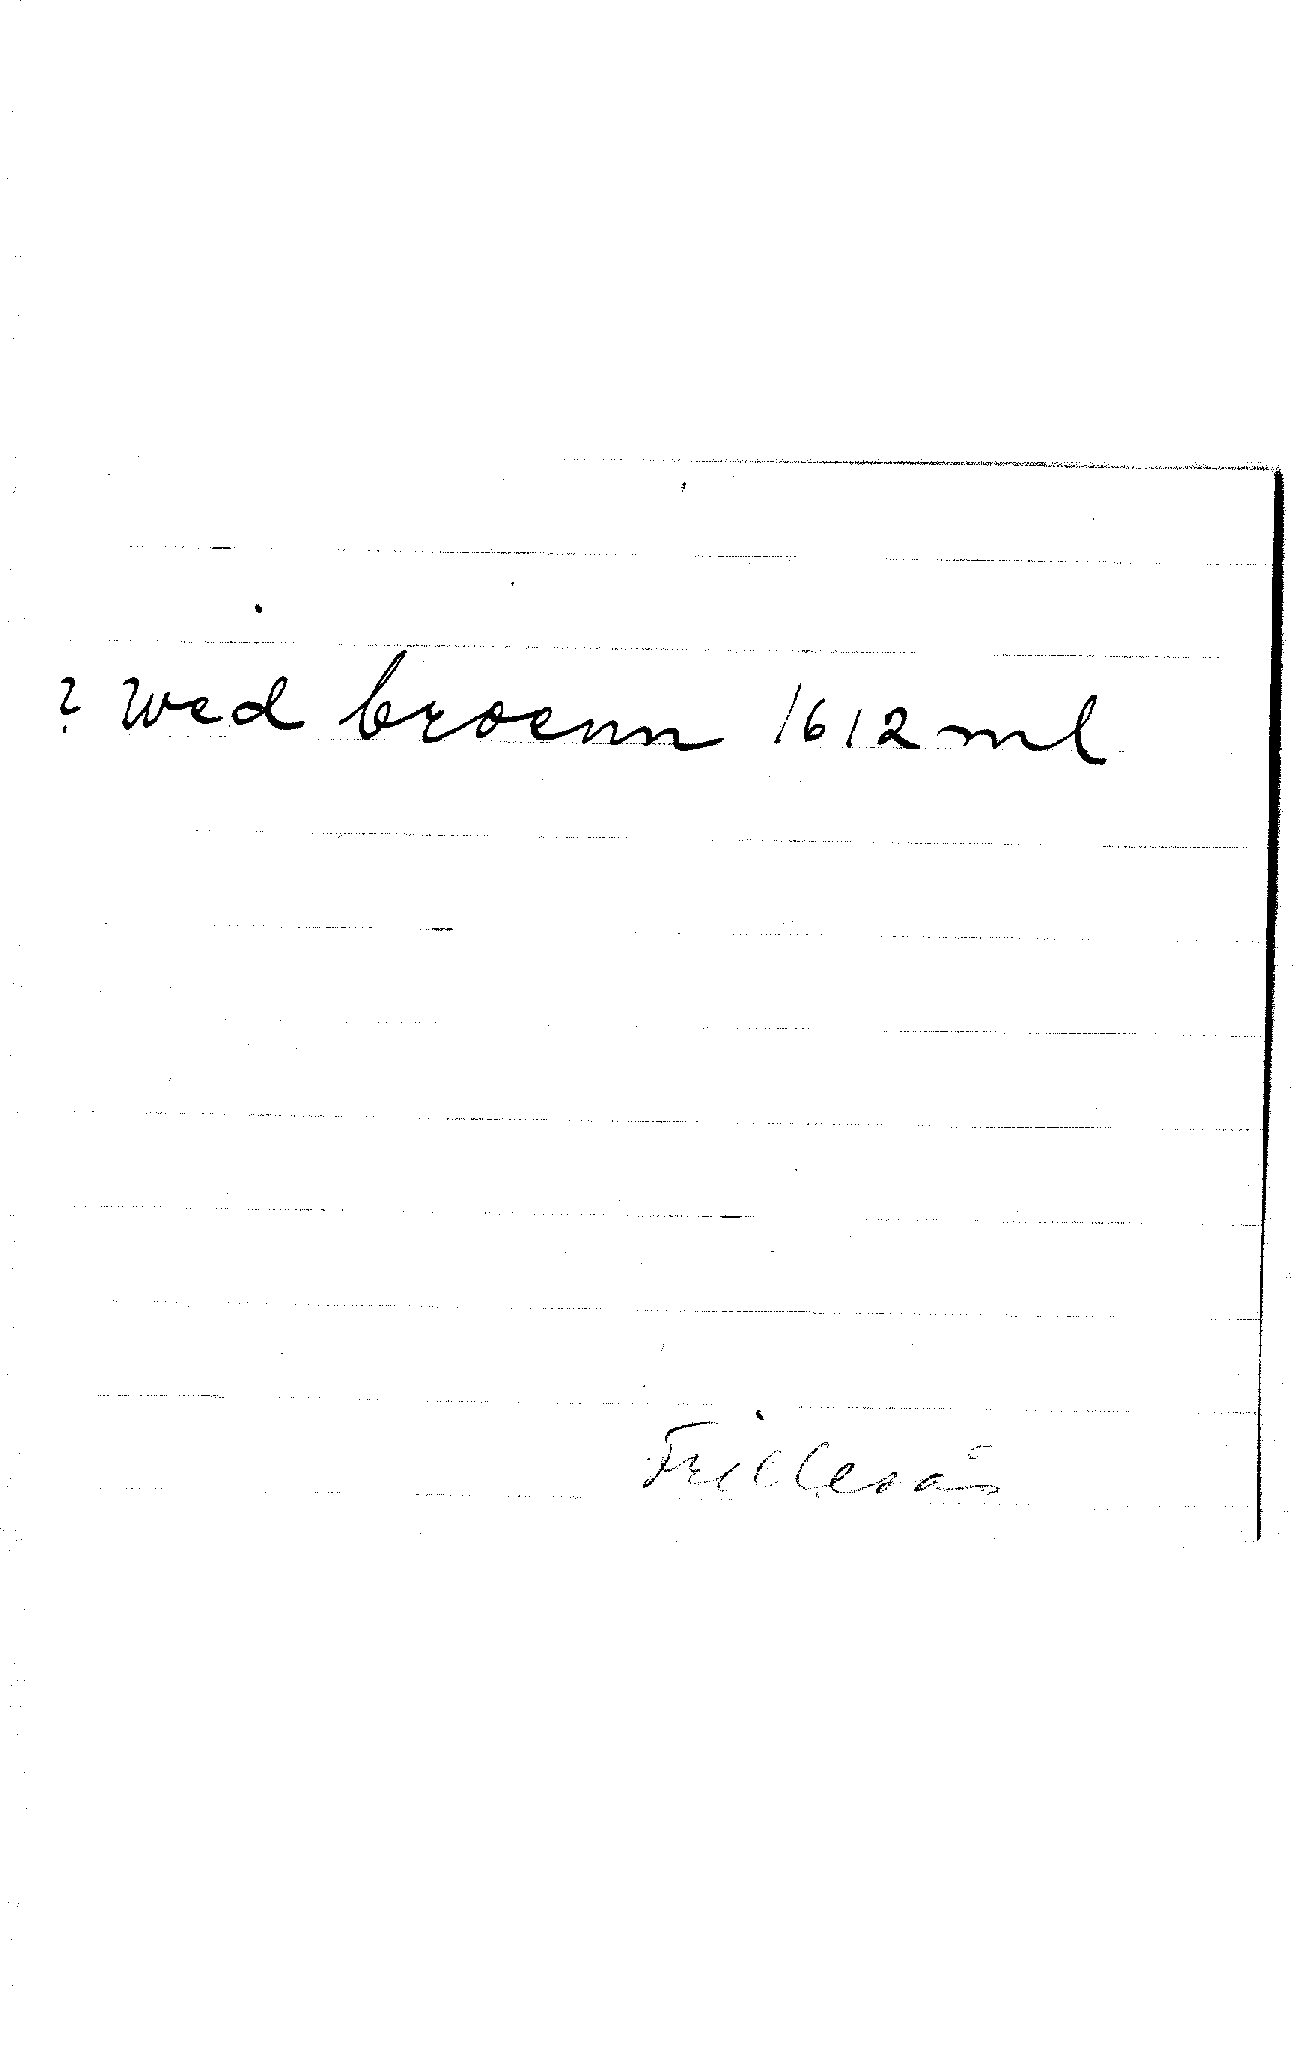 ? Wed broenn 1612 ml
Frillesås